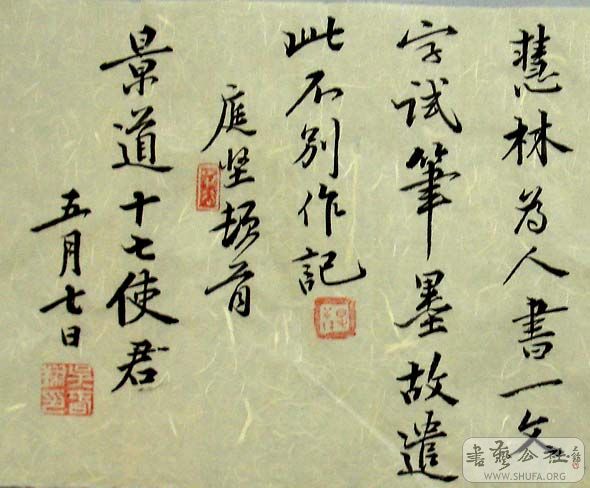 慧林为人書一文
字试筆墨故遣
此不别作記
庭坚顿首
景道十七使君
五月七日
書藝公社
WWW.SHUFA.ORG